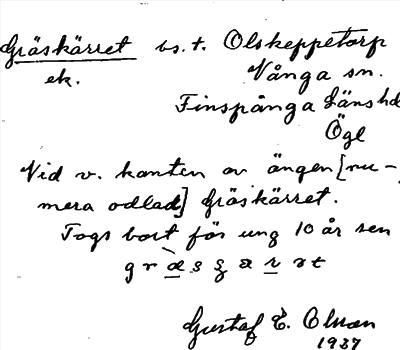 Gräskärret bs. t. Olskeppetorp
ek. Vånga sn.
Finspånga läns hd
Ögl
Vid v. kanten av ängen [nu-
mera odlad] Gräskärret.
Togs bort för ung 10 år sen
Gustaf E.
1937